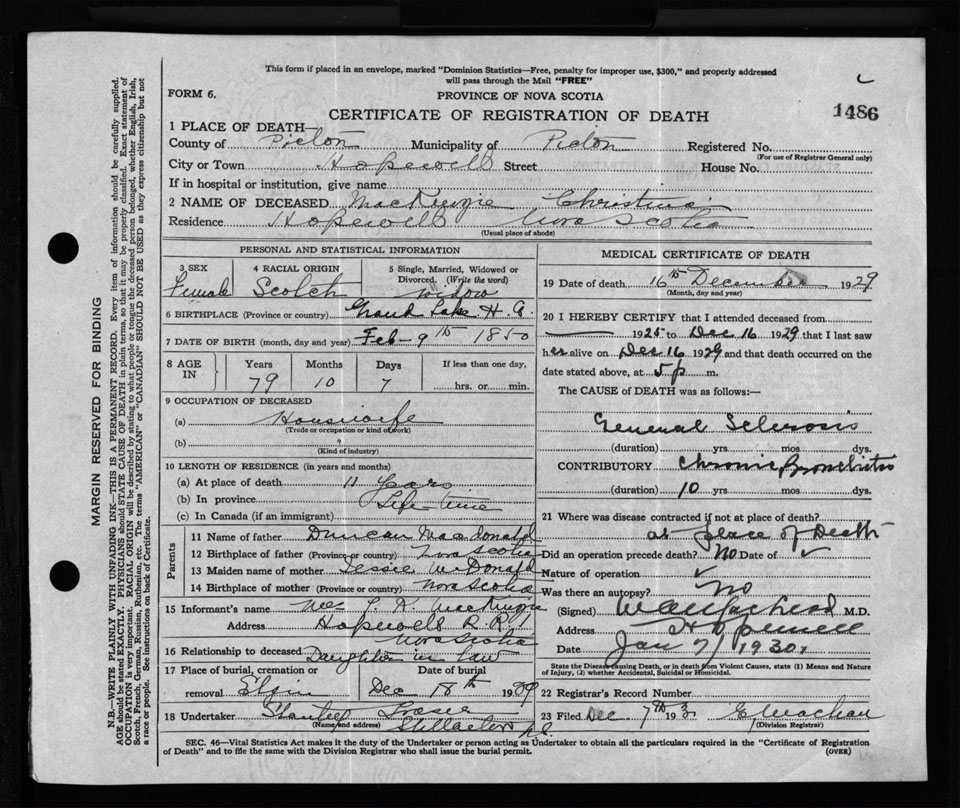 This form if placed in an envelope, marked "Dominion Statistics—Free, penalty for improper use, $300," and properly addressed
will pass through the Mail "FREE"
FORM 6.
PROVINCE OF NOVA SCOTIA
1486
CERTIFICATE OF REGISTRATION OF DEATH
1 PLACE OF DEATH—
County of Pictou Municipality of Pictou Registered No.
(For use of Registrar General only)
City or Town Hopewell Street House No.
If in hospital or institution, give name
2 NAME OF DECEASED MacKenzie Christina
Residence Hopewell Nova Scotia
(Usual place of abode)
PERSONAL AND STATISTICAL INFORMATION
3 SEX
Female
4 RACIAL ORIGIN
Scotch
5 Single, Married, Widowed or
Divorced. (Write the word)
widow
6 BIRTHPLACE (Province or country) Grand Lake
7 DATE OF BIRTH (month, day and year) Feb - 9th 1850
8 AGE IN
Years
79
Months
10
Days
7
If less than one day,
hrs. or min.
9 OCCUPATION OF DECEASED
(a) Housewife
(Trade or occupation or kind of work)
(b) "
(Kind of industry)
10 LENGTH OF RESIDENCE (in years and months)
(a) At place of death 11 years
(b) In province Life-time
(c) In Canada (if an immigrant)
Parents
11 Name of father Duncan Macdonald
12 Birthplace of father (Province or country) Nova Scotia
13 Maiden name of mother Jessie McDonald
14 Birthplace of mother Nova Scotia
15 Informant's name MacKenzie
Address Hopewell R.R. 1
Nova Scotia
16 Relationship to deceased Daughter in law
17 Place of burial, cremation or
removal Elgin
Date of burial
Dec 18th 1929
18 Undertaker
(Name and address) Stellarton N.S.
MEDICAL CERTIFICATE OF DEATH
19 Date of death 16th December 1929
(Month, day and year)
20 I HEREBY CERTIFY that I attended deceased from
1925 to Dec 16 1929 that I last saw
her alive on Dec 16 1929 and that death occurred on the
date stated above, at 5 p m.
The CAUSE of DEATH was as follows:—
General Sclerosis
(duration) yrs mos dys.
CONTRIBUTORY Chronic Bronchitis
(duration) 10 yrs mos dys.
21 Where was disease contracted if not at place of death?
at place of Death
Did an operation precede death? No Date of ✓
Nature of operation ✓
Was there an autopsy? No
(Signed) M.D.
Address Hopewell
Date Jan 7/1930
State the Disease causing Death, or in death from Violent Causes, state (1) Means and Nature
of Injury, (2) whether Accidental, Suicidal or Homicidal.
22 Registrar's Record Number
23 Filed Dec 7th 193
(Division Registrar)
SEC. 46—Vital Statistics Act makes it the duty of the Undertaker or person acting as Undertaker to obtain all the particulars required in the "Certificate of Registration
of Death" and to file the same with the Division Registrar who shall issue the burial permit.
(OVER)
MARGIN RESERVED FOR BINDING
N.B.—WRITE PLAINLY WITH UNFADING INK—THIS IS A PERMANENT RECORD. Every item of information should be carefully supplied.
AGE should be stated EXACTLY. PHYSICIANS should STATE CAUSE OF DEATH in plain terms, so that it may be properly classified. Exact statement of
OCCUPATION is very important. RACIAL ORIGIN will be described by stating to what people or tongue the deceased person belonged, whether English, Irish,
Scotch, French, German, Russian, Ruthenian, etc. The terms "AMERICAN" or "CANADIAN" SHOULD NOT BE USED as they express citizenship but not
a race or people. See instructions on back of Certificate.